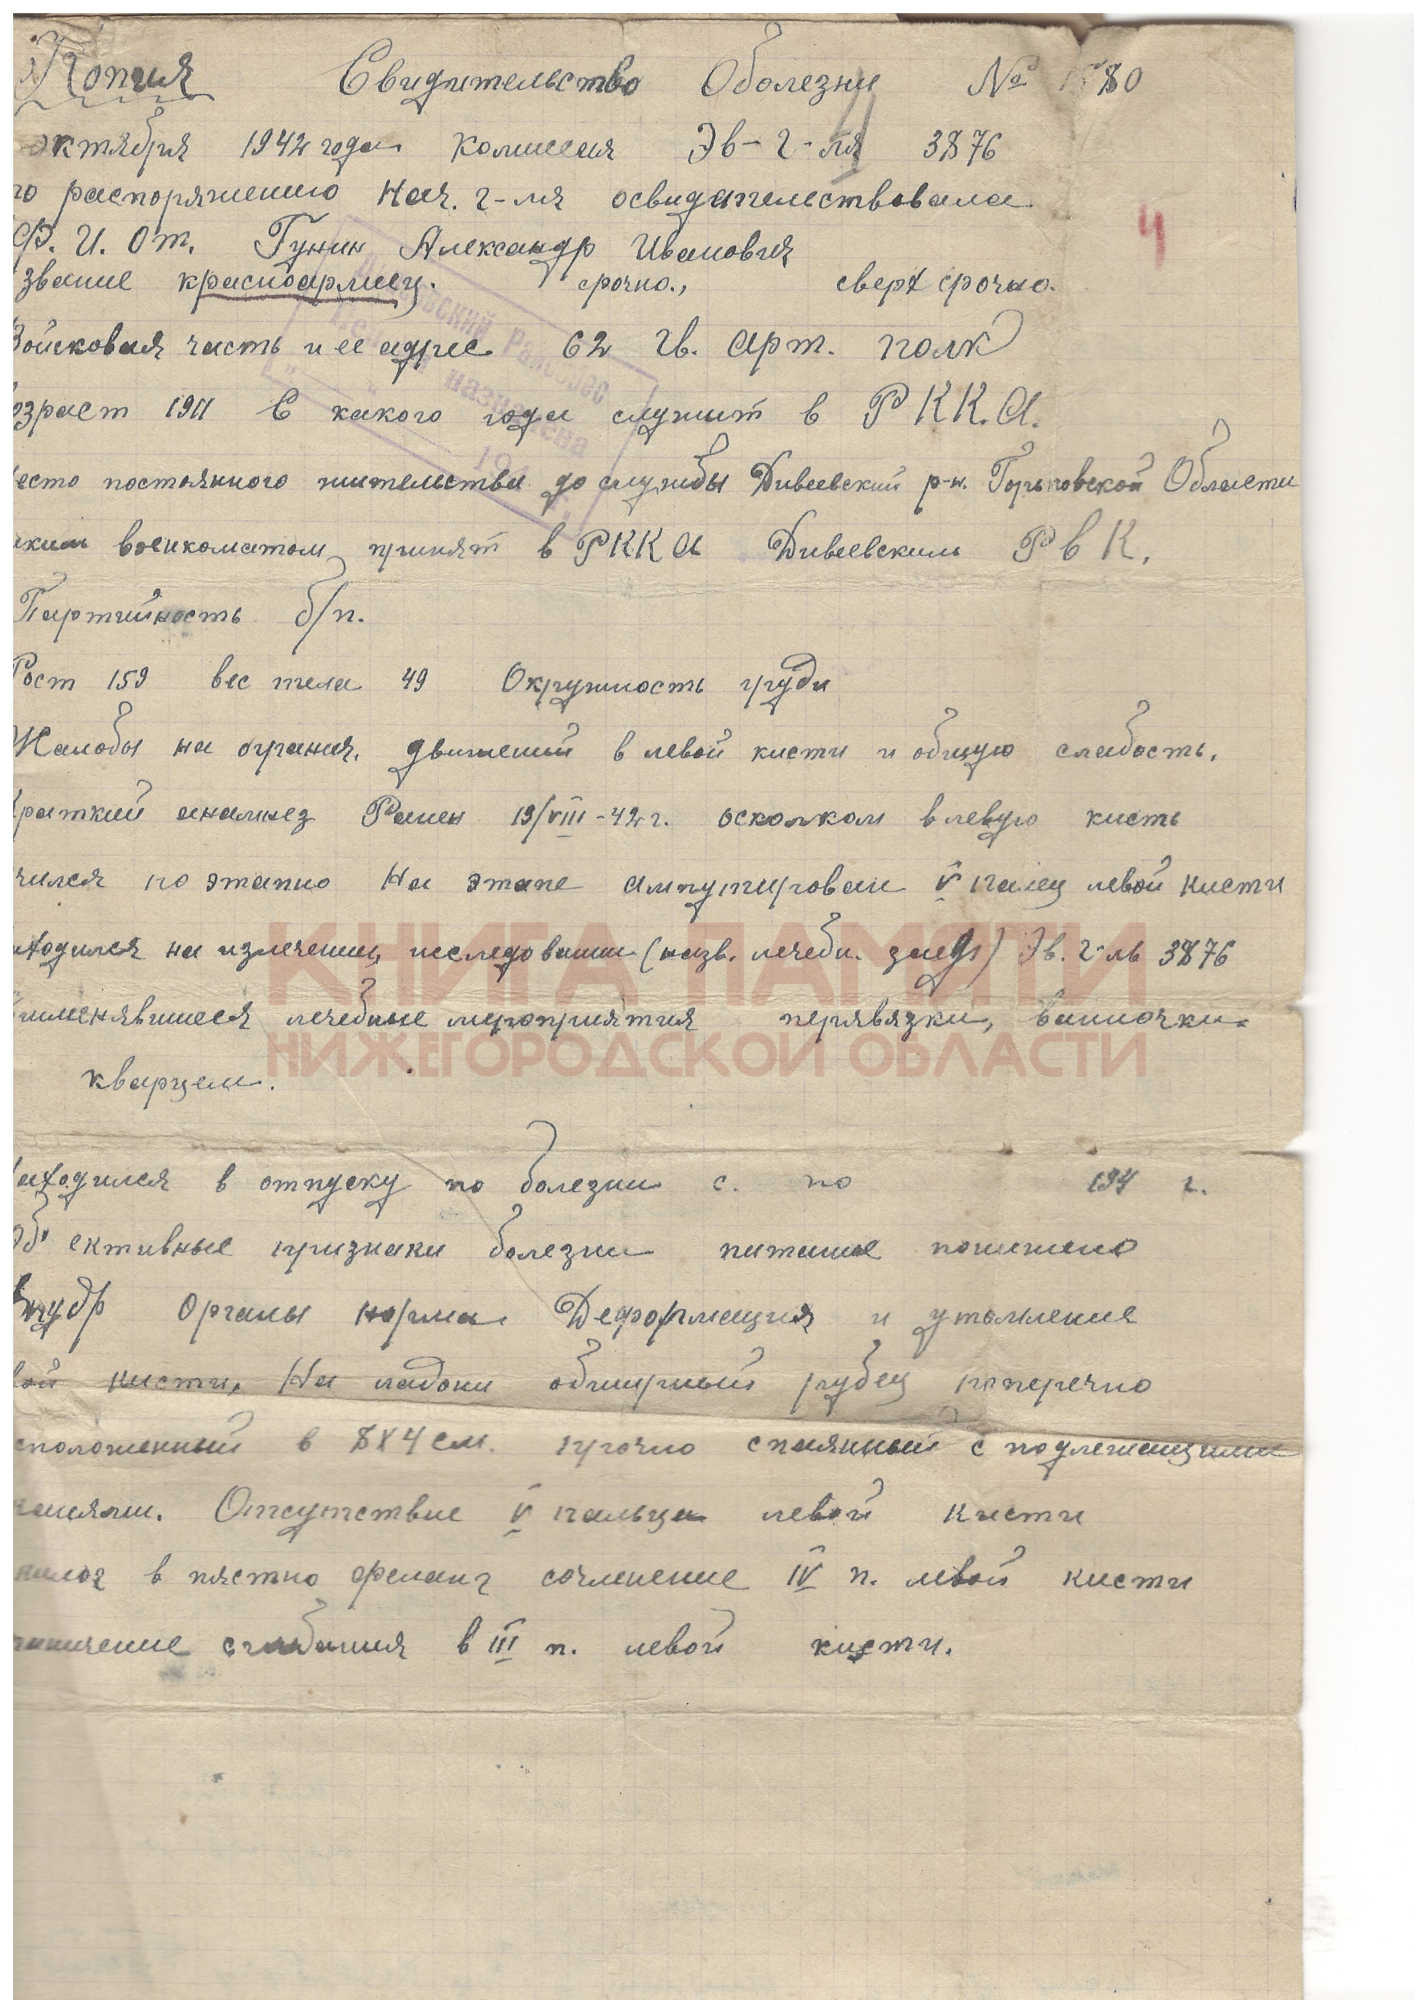 Копия Свидительство Оболезни № 1580
октября 1942 года комиссия Эв-г-ля 3876
по распоряжению нач. г-ля освидательствовала
Ф. И. От. Гунин Александр Иванович
звание красноармеец. срочно., сверх срочно.
Войсковая часть и ее адрес 62 гв. арт. полк
возраст 1911 С какого года служит в Р К К. А.
место постоянного жительства до службы Дивеевский р-н. Горьковской Области
каким военкоматом принят в РККА Дивеевским Р В К.
Партийность б/п.
Рост 159 вес тела 49 Окружность груди
Жалобы на огранич. движений в левой кисти и общую слабость.
Краткий анамнез Ранен 19/VIII-42 г. осколком в левую кисть
чился по этапно На этапе ампутирован V палец левой кисти
находился на излечении, исследовании (назв. лечебн. завед) Эв. г-ль 3876
применявшиеся лечебные мероприятия перявязки, ванночки
кварцем.
Находился в отпуску по болезни с. по 194 г.
Об'ективные признаки болезни питание понижено
Внутр Органы норма Деформация и утомления
вой кисти. На ладони обширный рубец поперечно
сположенный в 8х4 см. прочно спаянный с подлежащими
тканями. Отсутствие V пальца левой кисти
килоз в пястно фаланг сочленение IV п. левой кисти
раничение сгибания в III п. левой кисти.
4
КНИГА ПАМЯТИ
НИЖЕГОРОДСКОЙ ОБЛАСТИ